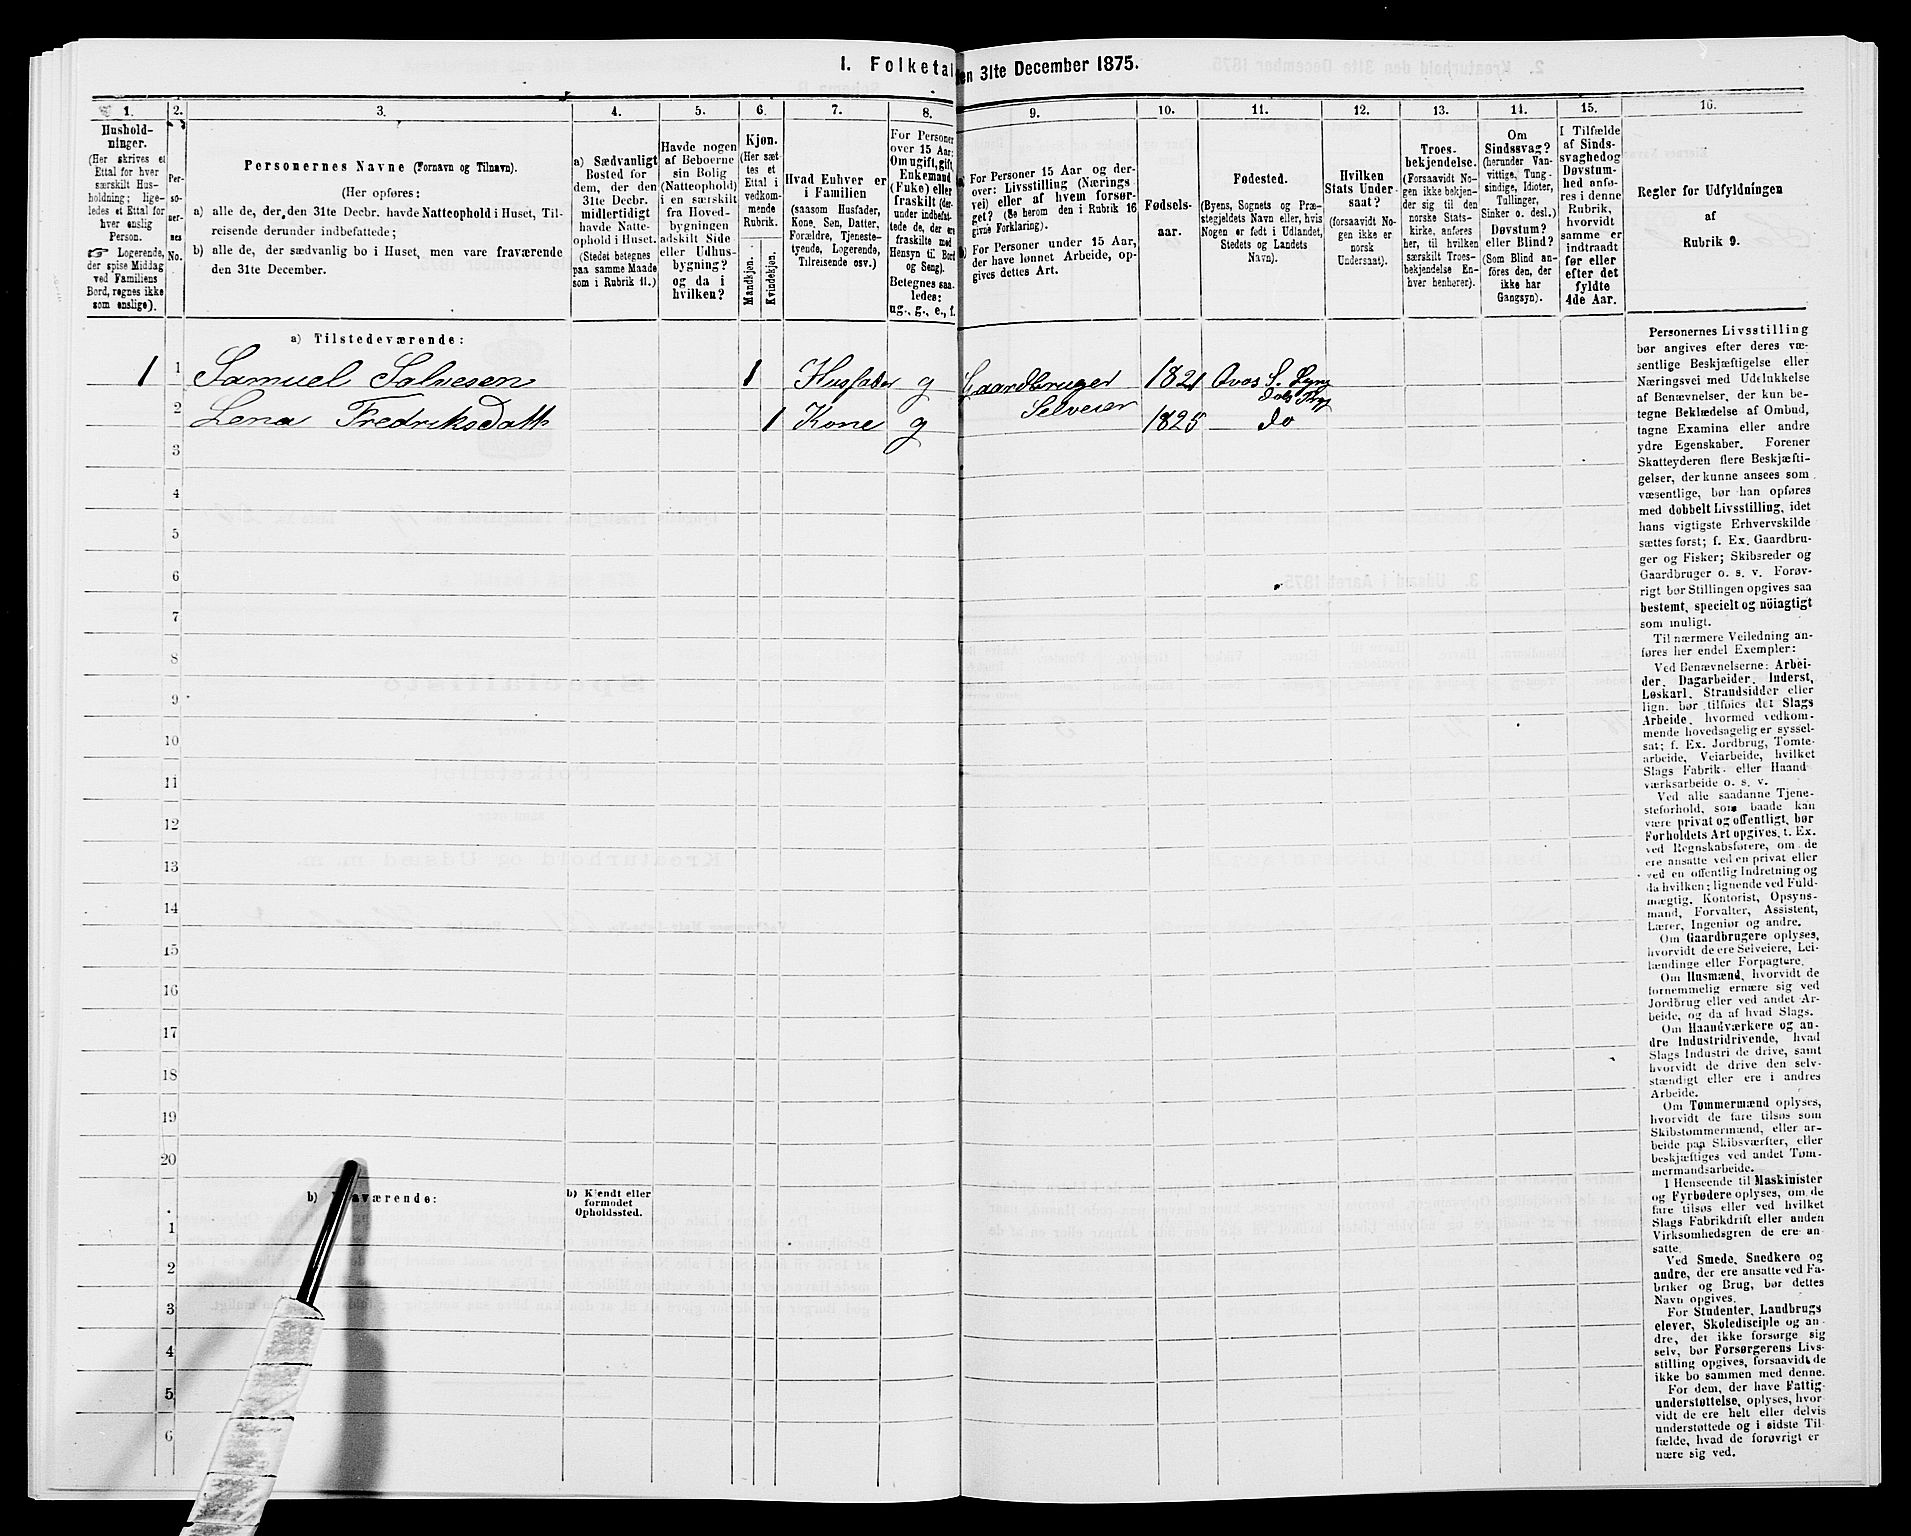 I. Folketal
en 31te December 1875.
1.
2.
3.
4.
5.
6.
7.
8.
9.
10.
11.
12.
13.
14.
15.
16.
Hushold-
ninger.
(Her skrives et
Ettal for hver
særskilt Hus-
holdning; lige-
ledes et Ettal for
hver enslig
Person.
☞ Logerende,
der spise Middag
ved Familiens
Bord, regnes ikke
som enslige).
Per-
so-
ner-
nes
No.
Personernes Navne (Fornavn og Tilnavn).
(Her opføres:
a) alle de, der den 31te Decbr. havde Natteophold i Huset, Til-
reisende derunder indbefattede;
b) alle de, der sædvanlig bo i Huset, men vare fraværende
den 31te December.
a) Sædvanligt
Bosted for
dem, der den
31te Decbr.
midlertidigt
havde Natte-
ophold i Huset.
(Stedet betegnes
paa samme Maade
som i Rubrik 11.)
Havde nogen
af Beboerne
sin Bolig
(Natteophold)
i en særskilt
fra Hoved-
bygningen
adskilt Side
eller Udhus-
bygning?
og da i
hvilken?
Kjøn.
(Her sæt
tes et
Ettal i
vedkom-
mende
Rubrik.
Mandkjøn.
Kvindekjøn.
Hvad Enhver er
i Familien
(saasom Husfader,
Kone, Søn, Datter,
Forældre, Tjeneste-
tyende, Logerende,
Tilreisende osv.)
For Personer
over 15 Aar:
Om ugift, gift,
Enkemand
(Fuke) eller
fraskilt (der-
under indbefat-
tede de, der ere
fraskilte med
Hensyn til Bord
og Seng).
Betegnes saa-
ledes:
ug., g., e., f.
a) For Personer 15 Aar og der-
over: Livsstilling (Nærings
vei) eller af hvem forsør-
get? (Se herom den i Rubrik 16
givne Forklaring).
b) For Personer under 15 Aar,
der have lønnet Arbeide, op-
gives dettes Art.
Fødsels-
aar.
Fødested.
(Byens, Sognets og Præ-
stegjeldets Navn eller, hvis
Nogen er født i Udlandet,
Stedets og Landets
Navn).
Hvilken
Stats Under-
saat?
(forsaavidt No-
gen ikke er
norsk
Undersaat).
Troes-
bekjendelse.
(Forsaavidt No-
gen ikke bekjen-
der sig til den
norske Stats-
kirke, anføres
her, til hvilken
særskilt Troes-
bekjendelse En-
hver henhører).
Om
Sindssvag?
(herunder Van-
vittige, Tung-
sindige, Idioter,
Tullinger,
Sinker o. desl.)
Døvstum?
eller Blind?
(Som Blind an-
føres den, der
ikke har
Gangsyn).
I Tilfælde
af Sinds-
svaghed og
Døvstum-
hed anfø-
res i denne
Rubrik,
hvorvidt
samme er
indtraadt
før eller
efter det
fyldte
4de Aar.
Regler for Udfyldningen
af
Rubrik 9.
a) Tilstedeværende:
1 1 Samuel Salvesen 1 Husfader g Gaardbruger 1821 Avos S. Lyng
Selveier dals Prg
2 Lena Fredriksdatt 1 Kone g 1825 do
3
4
5
6
7
8
9
10
11
12
13
14
15
16
17
18
19
20
b) værende:
b) Kjendt eller
formodet
Opholdssted.
1
2
3
4
5
6
Personernes Livsstilling
bør angives efter deres væ-
sentlige Beskjæftigelse eller
Næringsvei med Udelukkelse
af Benævnelser, der kun be-
tegne Beklædelse af Ombud,
tagne Examina eller andre
ydre Egenskaber. Forener
Skatteyderen flere Beskjæfti-
gelser, der kunne ansees som
væsentlige, bør han opføres
med dobbelt Livsstilling, idet
hans vigtigste Erhvervskilde
sættes først; f. Ex. Gaardbru-
ger og Fisker; Skibsreder og
Gaardbruger o. s. v. Forøv-
rigt bør Stillingen opgives saa
bestemt, specielt og nöiagtigt
som muligt.
Til nærmere Veiledning an-
føres her endel Exempler:
Ved Benævnelserne: Arbei-
der, Dagarbeider, Inderst,
Løskarl, Strandsidder eller
lign. bør tilføies det Slags
Arbeide, hvormed vedkom-
mende hovedsagelig er syssel-
sat; f. Ex. Jordbrug, Tomte-
arbeide, Veiarbeide, hvilket
Slags Fabrik- eller Haand
værksarbeide o. s. v.
Ved alle saadanne Tjene-
steforhold, som baade kan
være privat og offentligt, bør
Forholdets Art opgives, t. Ex.
ved Regnskabsførere, om de
ere ansatte ved en privat eller
ved en offentlig Indretning og
da hvilken; lignende ved Fuld-
mægtig, Kontorist, Opsyns-
mand, Forvalter, Assistent,
Lærer, Ingeniør og andre.
Om Gaardbrugere oplyses,
hvorvidt de ere Selveiere, Lei-
lændinge eller Forpagtere.
Om Husmænd, hvorvidt de
fornemmelig ernære sig ved
Jordbrug eller ved andet Ar-
beide, og da af hvad Slags.
Om Haandværkere og an-
dre Industridrivende, hvad
Slags Industri de drive, samt
hvorvidt de drive den selv-
stændigt eller ere i andres
Arbeide.
Om Tømmermænd oplyses,
hvorvidt de fare tilsøs som
Skibstømmermænd, eller ar-
beide paa Skibsværfter, eller
beskjæftiges ved andet Tøm-
mermandsarbeide.
I Henseende til Maskinister
og Fyrbødere oplyses, om de
fare tilsøs eller ved hvilket
Slags Fabrikdrift eller anden
Virksomhedsgren de ere an-
satte.
Ved Smede, Snedkere og
andre, der ere ansatte ved Fa-
briker og Brug, bør dettes
Navn opgives.
For Studenter, Landbrugs
elever, Skoledisciple og an-
dre, det ikke forsørge sig
selv, bør Forsørgerens Livs-
stilling opgives, forsaavidt de
ikke bo sammen med denne.
For dem, der have Fattig-
understøttelse, oplyses, hvor-
vidt de ere helt eller delvis
understøttede og i sidste Til-
fælde, hvad de forøvrigt er
nære sig ved.